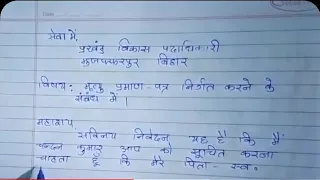 सेवा में,
प्रखंड विकास पदाधिकारी
मुजफ्फरपुर बिहार
विषय: मृत्यु प्रमाण-पत्र निर्गत करने के
संबंध में।
महाशय
सविनय निवेदन यह है कि मैं
चन्दन कुमार आप को सूचित करना
चाहता हूँ कि मेरे पिता- स्व.